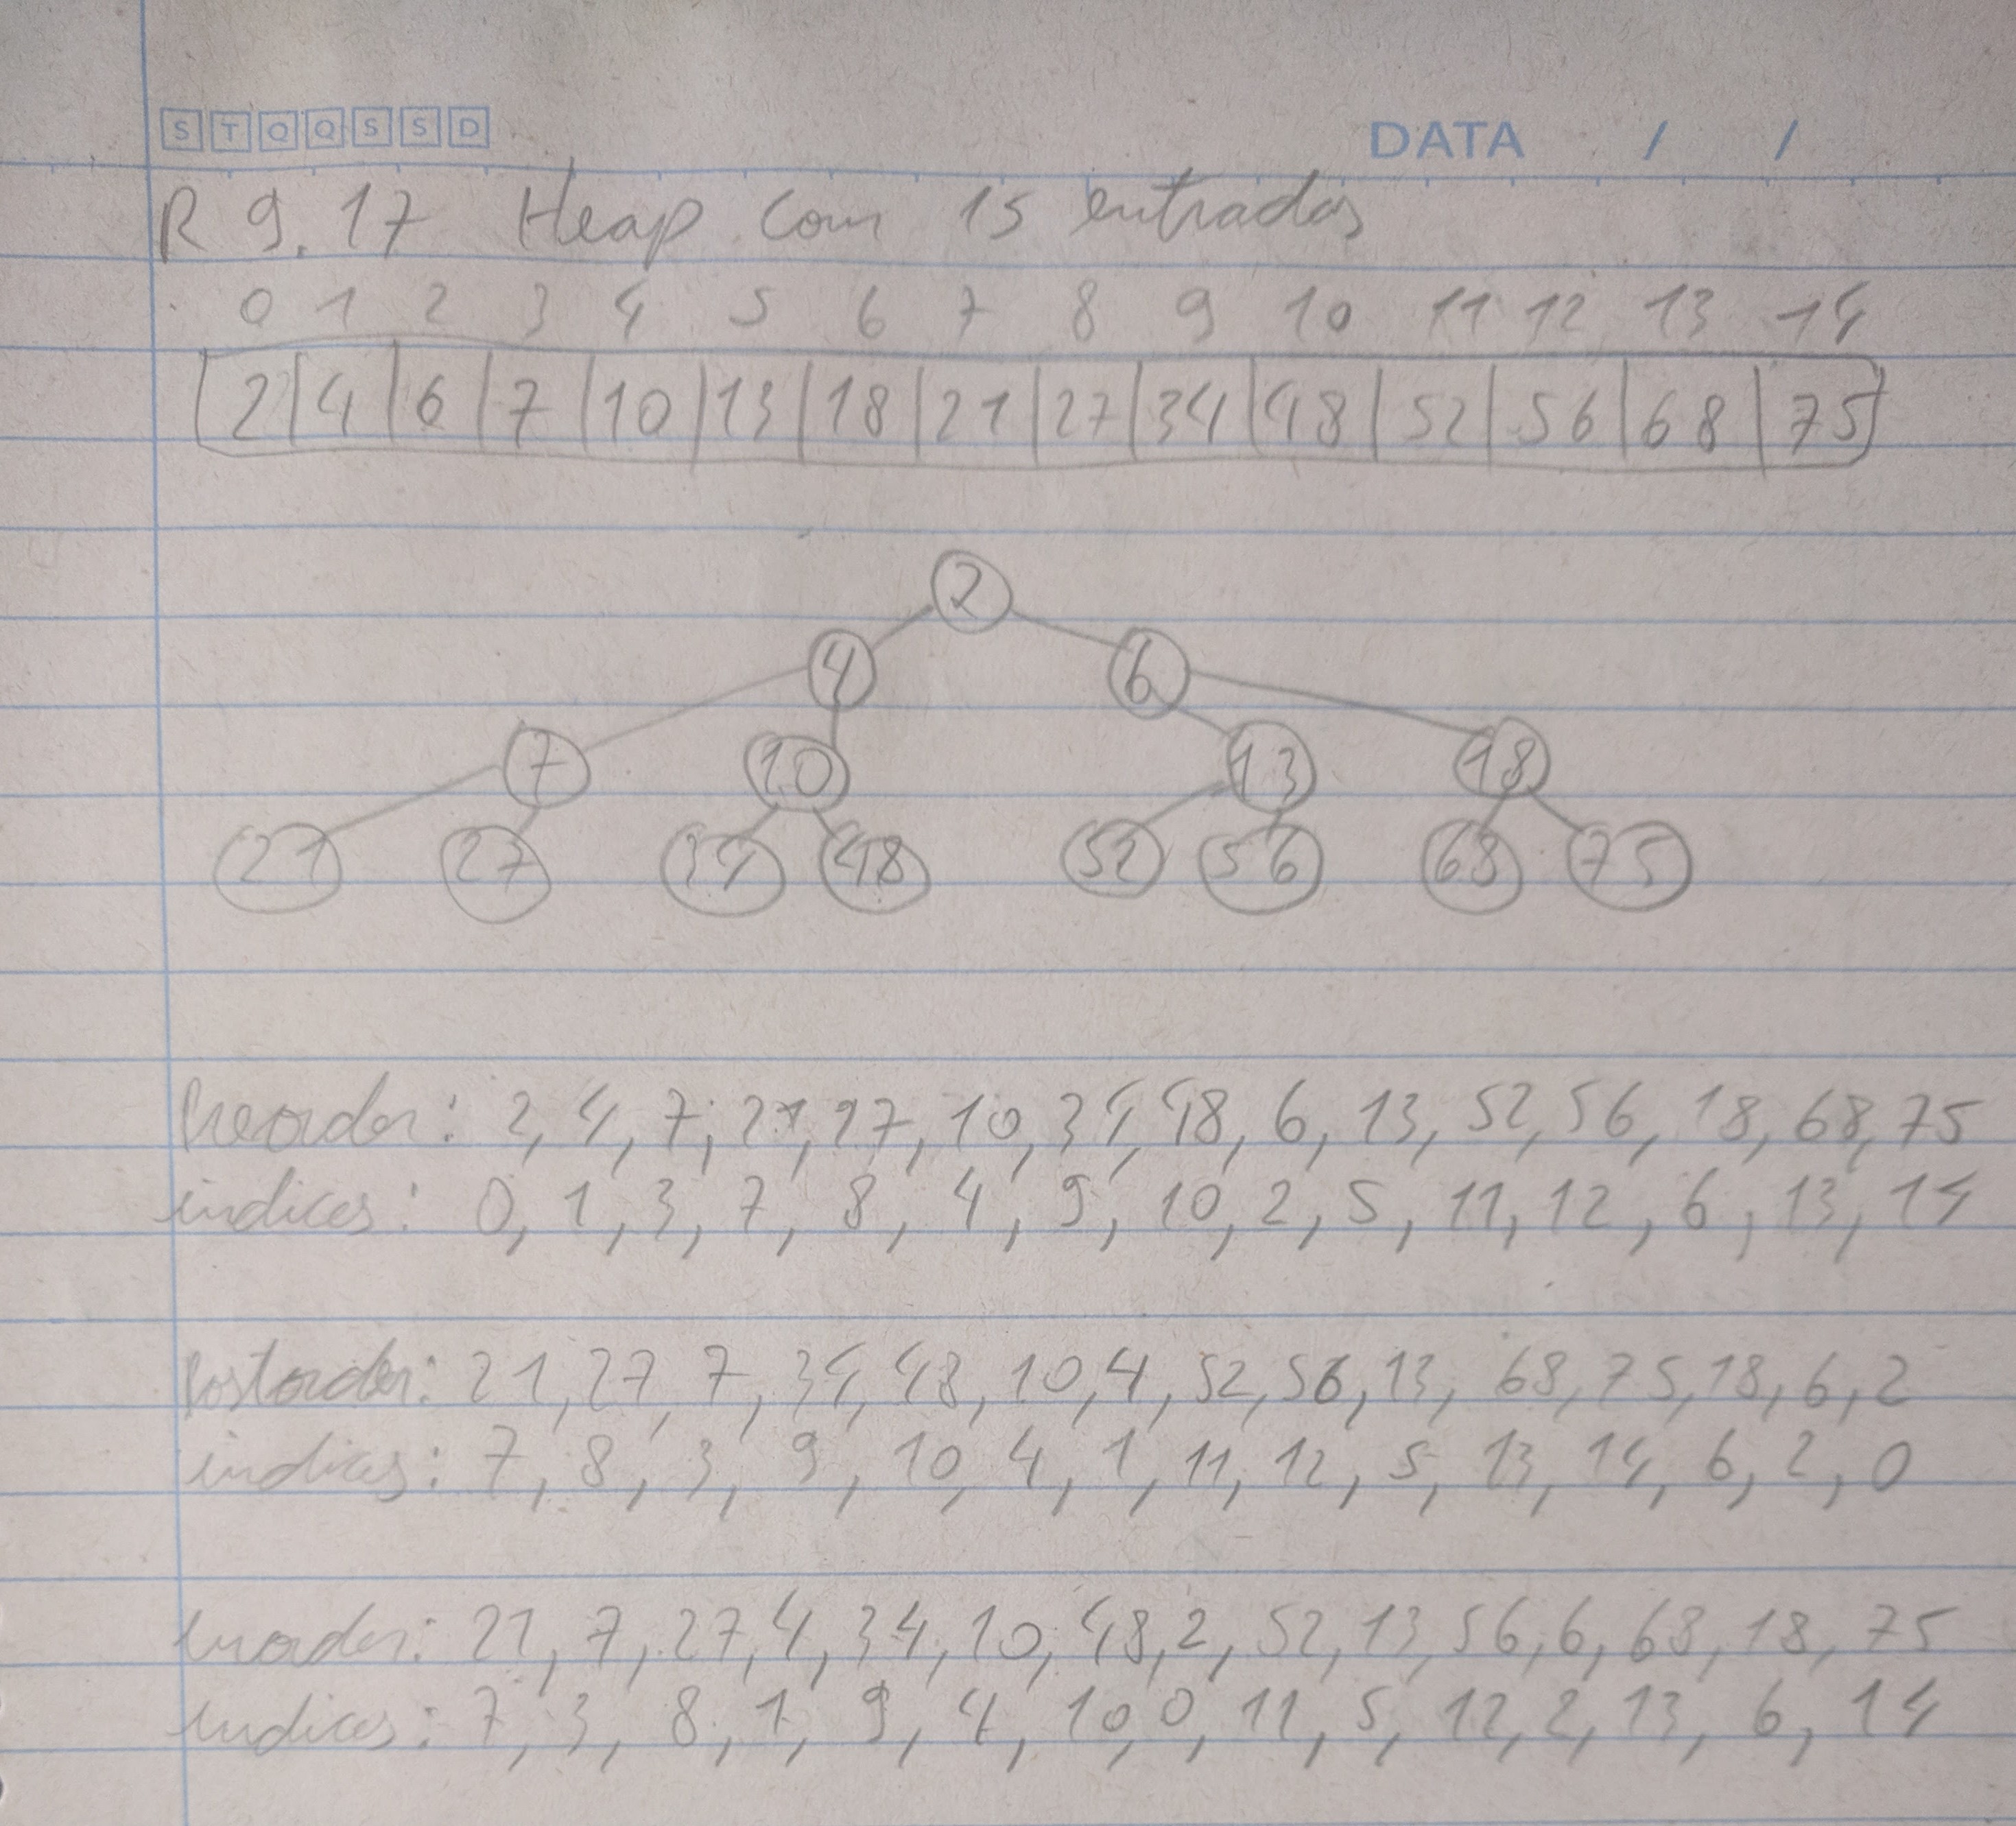 S T Q Q S S D DATA / /
R 9.17 Heap com 15 entradas
0 1 2 3 4 5 6 7 8 9 10 11 12 13 14
2 4 6 7 10 13 18 21 27 34 48 52 56 68 75
2
4 6
7 10 13 18
21 27 34 48 52 56 68 75
Preorder: 2, 4, 7, 21, 27, 10, 34, 48, 6, 13, 52, 56, 18, 68, 75
indices: 0, 1, 3, 7, 8, 4, 9, 10, 2, 5, 11, 12, 6, 13, 14
Postorder: 21, 27, 7, 34, 48, 10, 4, 52, 56, 13, 68, 75, 18, 6, 2
indices: 7, 8, 3, 9, 10, 4, 1, 11, 12, 5, 13, 14, 6, 2, 0
Inorder: 21, 7, 27, 4, 34, 10, 48, 2, 52, 13, 56, 6, 68, 18, 75
Indices: 7, 3, 8, 1, 9, 4, 10, 0, 11, 5, 12, 2, 13, 6, 14